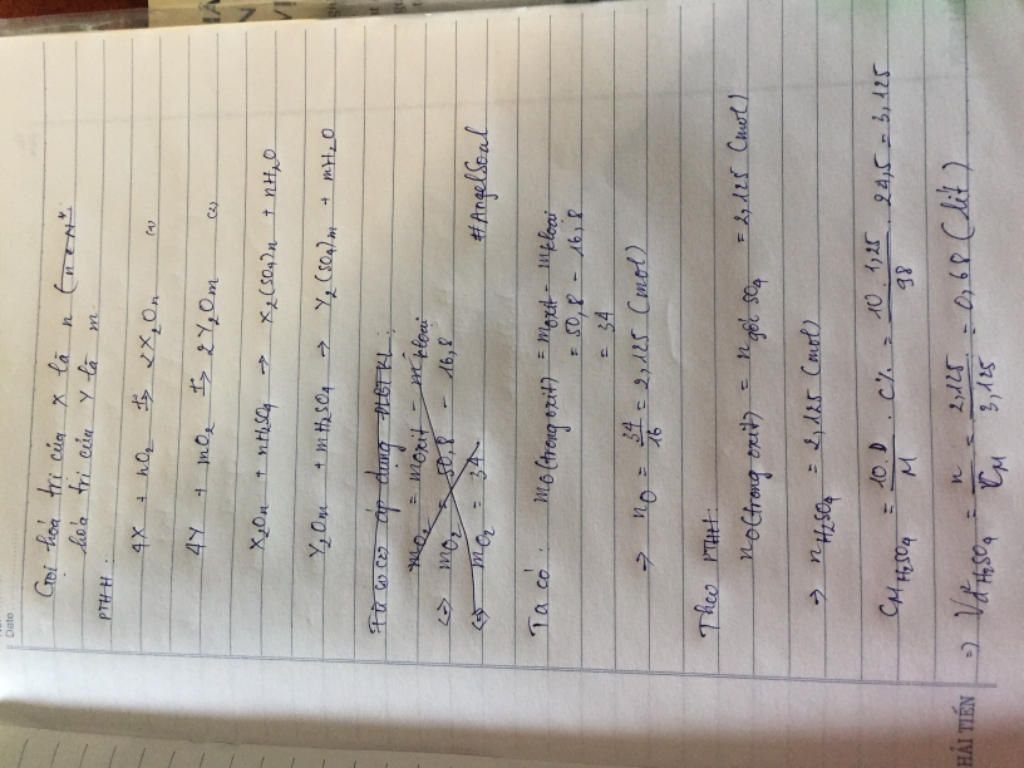 Date
Gọi hóa trị của X là n (n ∈ N*
hóa trị của Y là m
PTHH:
4X + nO2 t°→ 2X2On (1)
4Y + mO2 t°→ 2Y2Om (2)
X2On + nH2SO4 → X2(SO4)n + nH2O
Y2Om + mH2SO4 → Y2(SO4)m + mH2O
áp dụng ĐLBTKL:
mO2 = moxit - mkloai
<=> mO2 = 50,8 - 16,8
<=> mO2 = 34
#AngelSoal
Ta có: mO(trong oxit) = moxit - mkloai
= 50,8 - 16,8
= 34
→ nO = 34/16 = 2,125 (mol)
Theo PTHH:
nO(trong oxit) = n gốc SO4 = 2,125 (mol)
→ nH2SO4 = 2,125 (mol)
CM H2SO4 = 10.D/M . C% = 10.1,25/98 . 24,5 = 3,125
=> Vd2 H2SO4 = n/CM = 2,125/3,125 = 0,68 (lít)
HẢI TIẾN